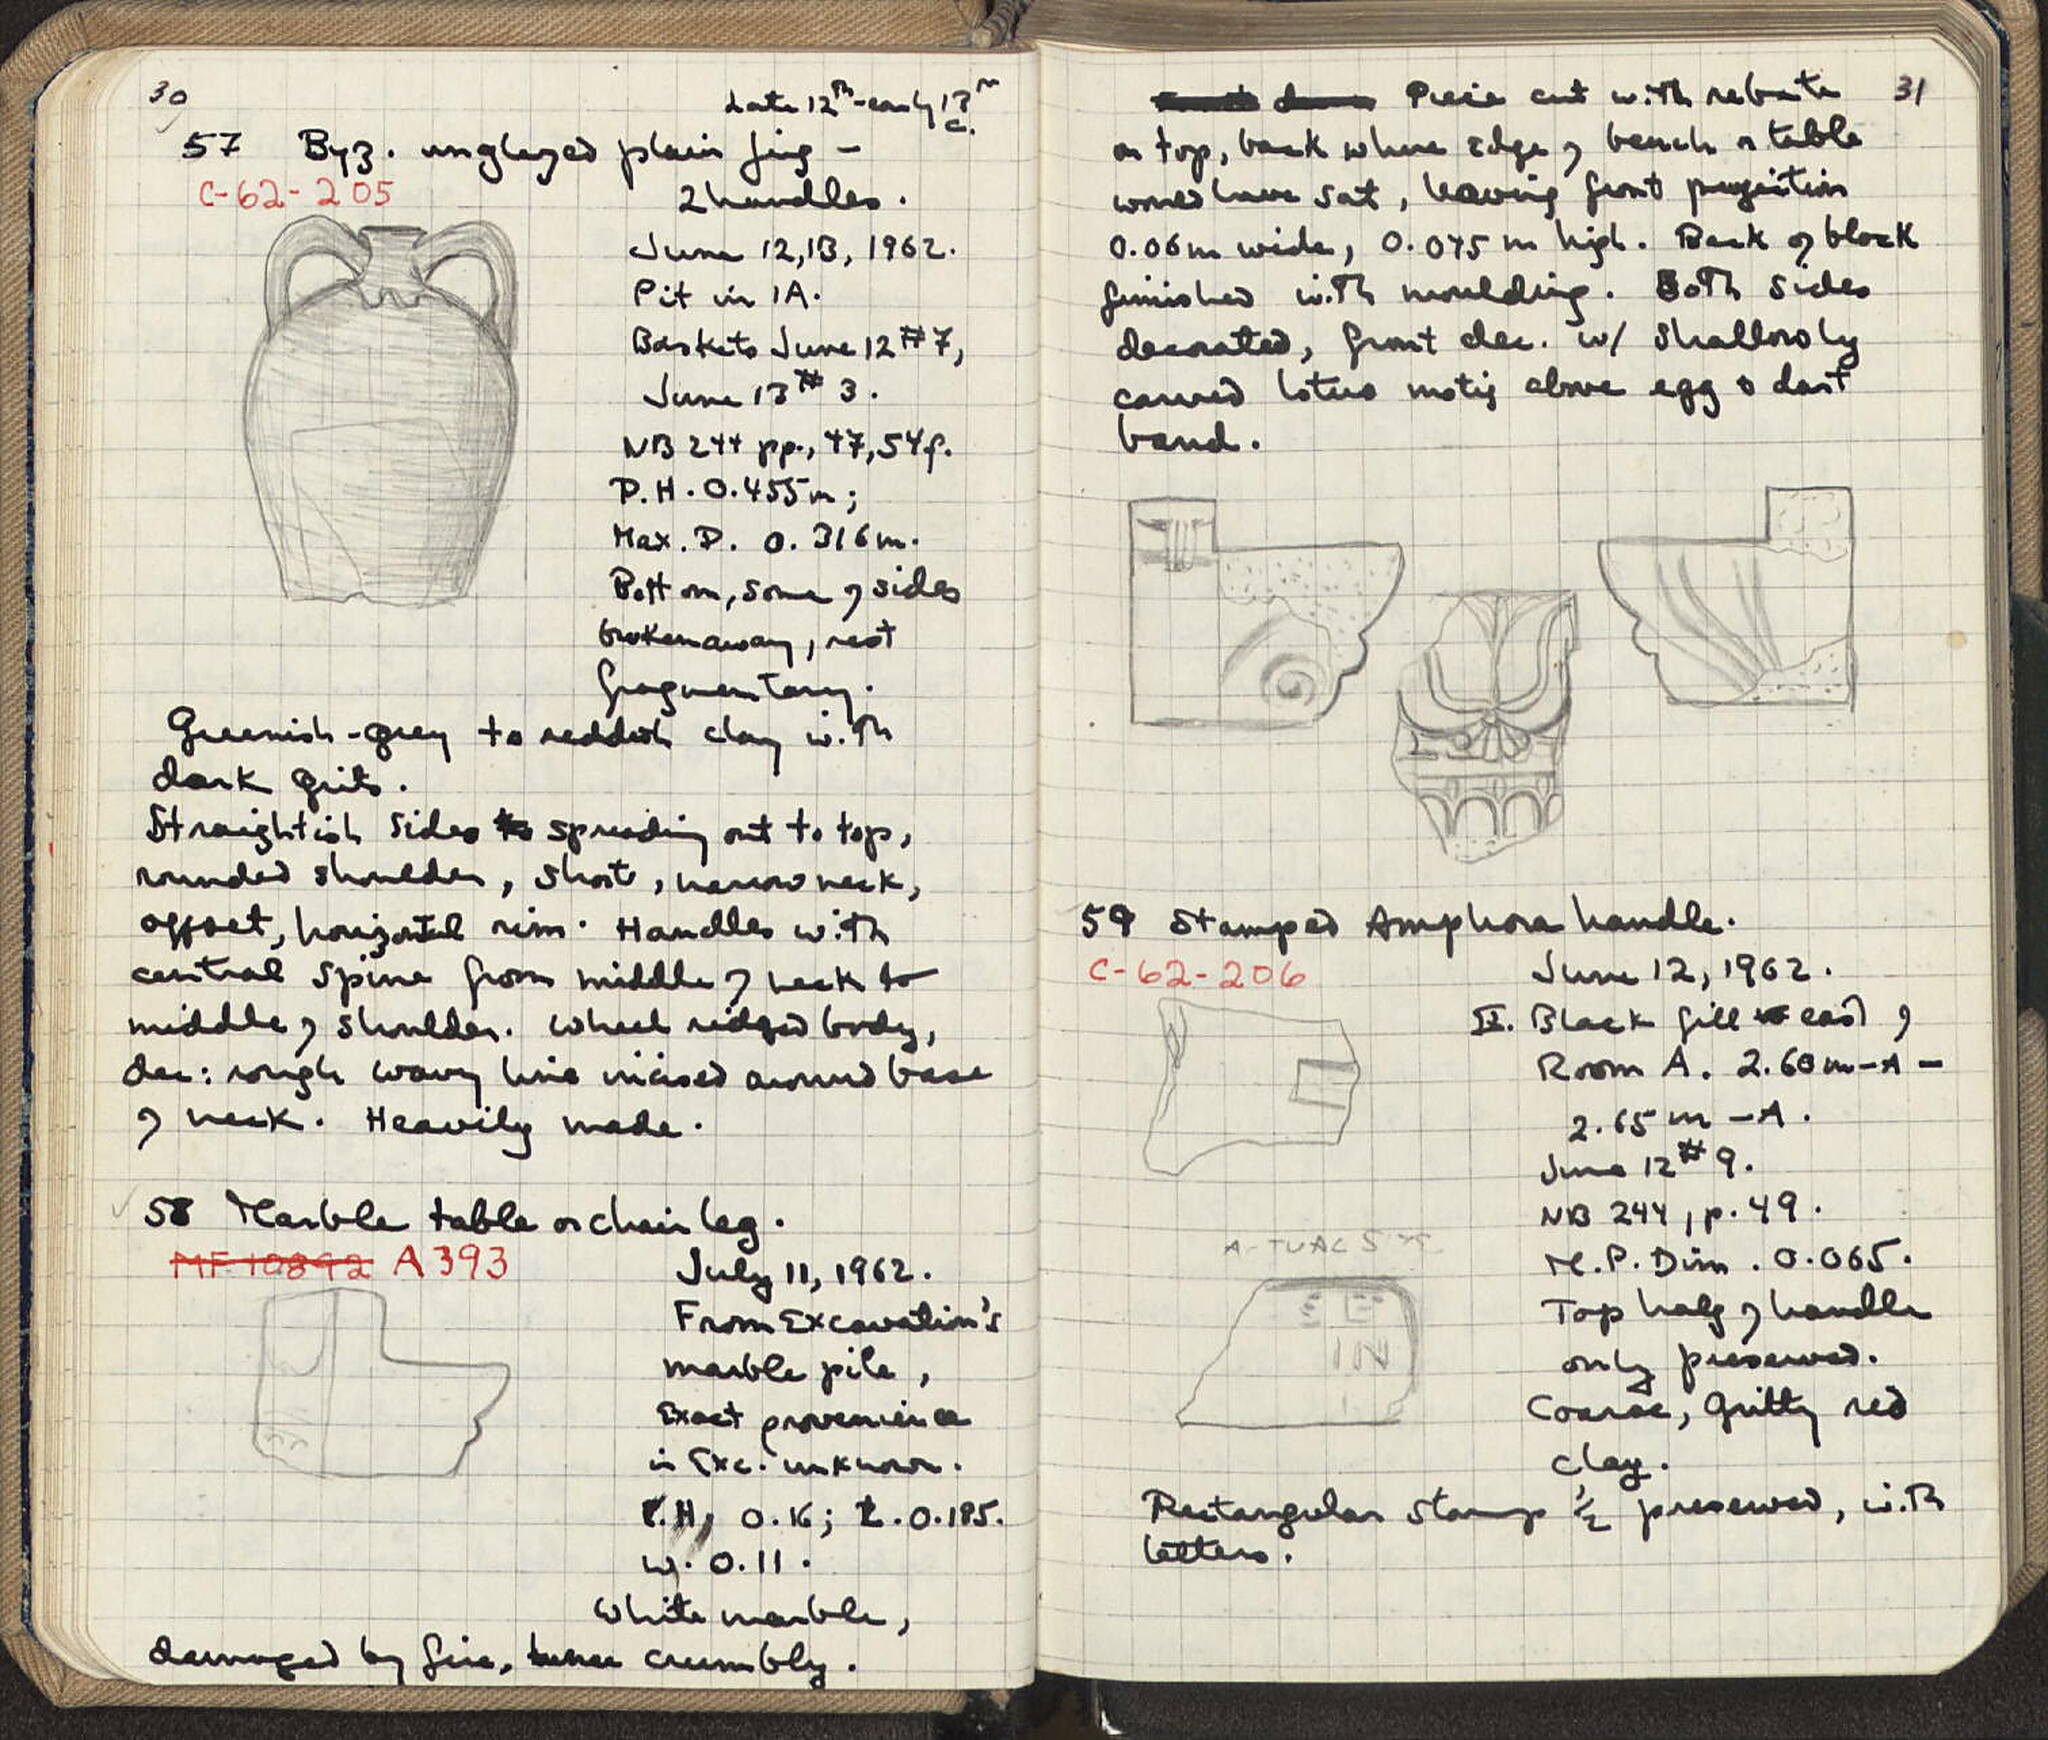 30
Late 12th-early 13th
c.
57 Byz. unglazed plain jug -
C-62-205
2 handles.
June 12, 13, 1962.
Pit in 1A.
Baskets June 12 #7,
June 13 # 3.
NB 244 pp., 47, 54f.
P.H. 0.455m;
Max. D. 0.316m.
Bottom, some of sides
broken away, rest
fragmentary.
Greenish-grey to reddish clay with
dark grits.
Straightish sides to spreading out to top,
rounded shoulder, short, narrow neck,
offset, horizontal rim. Handles with
central spine from middle of neck to
middle of shoulder. Wheel ridged body,
dec: rough wavy line incised around base
of neck. Heavily made.
58 Marble table or chair leg.
MF 10892 A 393
July 11, 1962.
From Excavation's
marble pile,
Exact provenience
in Exc. unknown.
P.H. 0.16; L. 0.195.
W. 0.11.
White marble,
damaged by fire, hence crumbly.
31
Piece cut with rebate
on top, back where edge of bench or table
would have sat, leaving front projection
0.06m wide, 0.075 m high. Back of block
finished with moulding. Both sides
decorated, front dec. w/ shallowly
carved lotus motif above egg & dart
band.
59 Stamped Amphora handle.
C-62-206
June 12, 1962.
II. Black fill east of
Room A. 2.60m-A-
2.65 m -A.
June 12 #9.
NB 244, p. 49.
M.P. Dim. 0.065.
Top half of handle
only preserved.
Coarse, gritty red
clay.
E
IN
Rectangular stamp 1/2 preserved, with
letters.